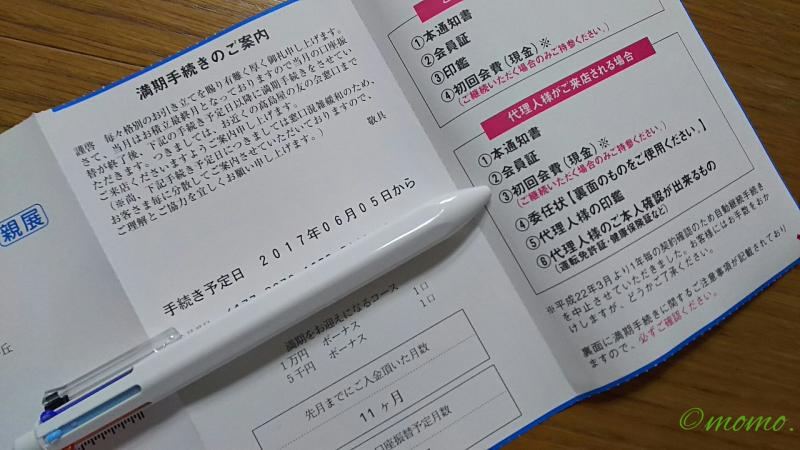 親展
丘
満期手続きのご案内
謹啓 毎々格別のお引き立てを賜り有難く厚く御礼申し上げます。
さて、当月はお積立最終月となっておりますので当月の口座振
替が終了後、下記の手続き予定日以降に満期手続きをさせてい
ただきます。つきましては、お近くの高島屋の友の会窓口まで
ご来店くださいますようご案内申し上げます。
(※尚、下記手続き予定日につきましては窓口混雑緩和のため、
お客さま毎に分散してご案内させていただいておりますので、
ご理解とご協力を宜しくお願い申し上げます。)
敬具
手続き予定日 2017年06月05日から
満期をお迎えになるコース
1万円 ボーナス 1口
5千円 ボーナス 1口
先月までにご入金頂いた月数
11ヶ月
口座振替予定月数
①本通知書
②会員証
③印鑑
④初回会費(現金)※
(ご継続いただく場合のみご持参ください。)
代理人様がご来店される場合
①本通知書
②会員証
③初回会費(現金)※
(ご継続いただく場合のみご持参ください。)
④委任状【裏面のものをご使用ください。】
⑤代理人様の印鑑
⑥代理人様のご本人確認が出来るもの
(運転免許証・健康保険証など)
※平成22年3月より1年毎の契約確認のため自動継続手続き
を中止させていただきました。お客様にはお手数をおか
けしますが、どうかご了承ください。
裏面に満期手続きに関するご注意事項が記載されており
ますので、必ずご確認ください。
©momo.